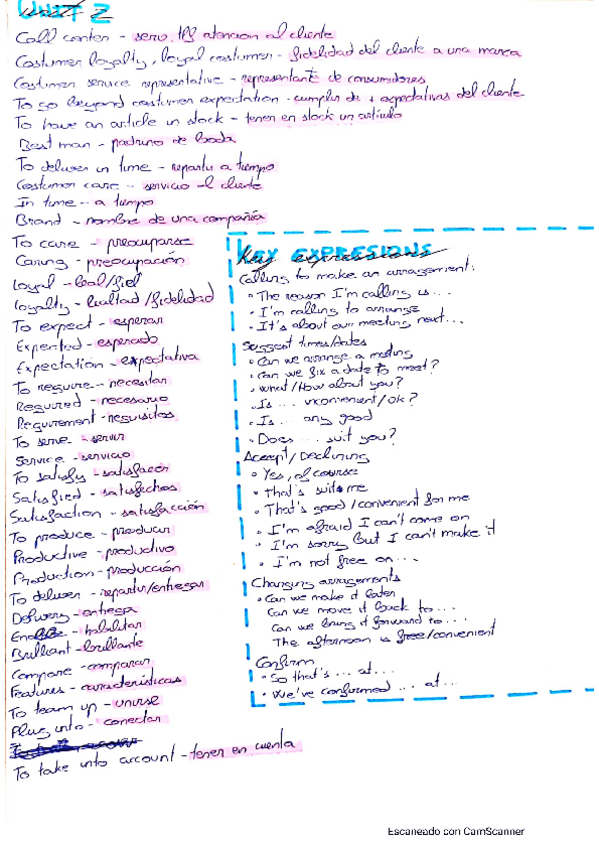 UNIT 2
Call center - serv. tlf atencion al cliente
Costumer loyalty, loyal costumer - fidelidad del cliente a una marca
Costumer service representative - representante de consumidores
To go beyond costumer expectation - cumplir de + expectativas del cliente
To have an article in stock - tener en stock un artículo
Best man - padrino de boda
To deliver in time - repartir a tiempo
Costumer care - servicio al cliente
In time - a tiempo
Brand - nombre de una compañía
To care - preocuparse
Caring - preocupación
Loyal - leal/fiel
Loyalty - lealtad/fidelidad
To expect - esperar
Expected - esperado
Expectation - expectativa
To require - necesitar
Required - necesario
Requirement - requisitos
To serve - servir
Service - servicio
To satisfy - satisfacer
Satisfied - satisfechos
Satisfaction - satisfacción
To produce - producir
Productive - productivo
Production - producción
To deliver - repartir/entregar
Delivery - entrega
Enable - habilitar
Brilliant - brillante
Compare - comparar
Features - características
To team up - unirse
Plug into - conectar
To take into account - tener en cuenta
KEY EXPRESIONS
Calling to make an arragement:
• The reason I'm calling is...
• I'm calling to arrange
• It's about our meeting next...
Suggest times/dates
• Can we arrange a meeting
• Can we fix a date to meet?
• What/How about you?
• Is ... inconvenient/ok?
• Is ... any good
• Does ... suit you?
Accept/Declining
• Yes, of course
• That's suits me
• That's good/convenient for me
• I'm afraid I can't come on
• I'm sorry but I can't make it
• I'm not free on...
Changing arragements
• Can we make it later
Can we move it back to...
Can we bring it forward to...
The afternoon is free/convenient
Confirm
• So that's ... at...
• We've confirmed ... at...
Escaneado con CamScanner